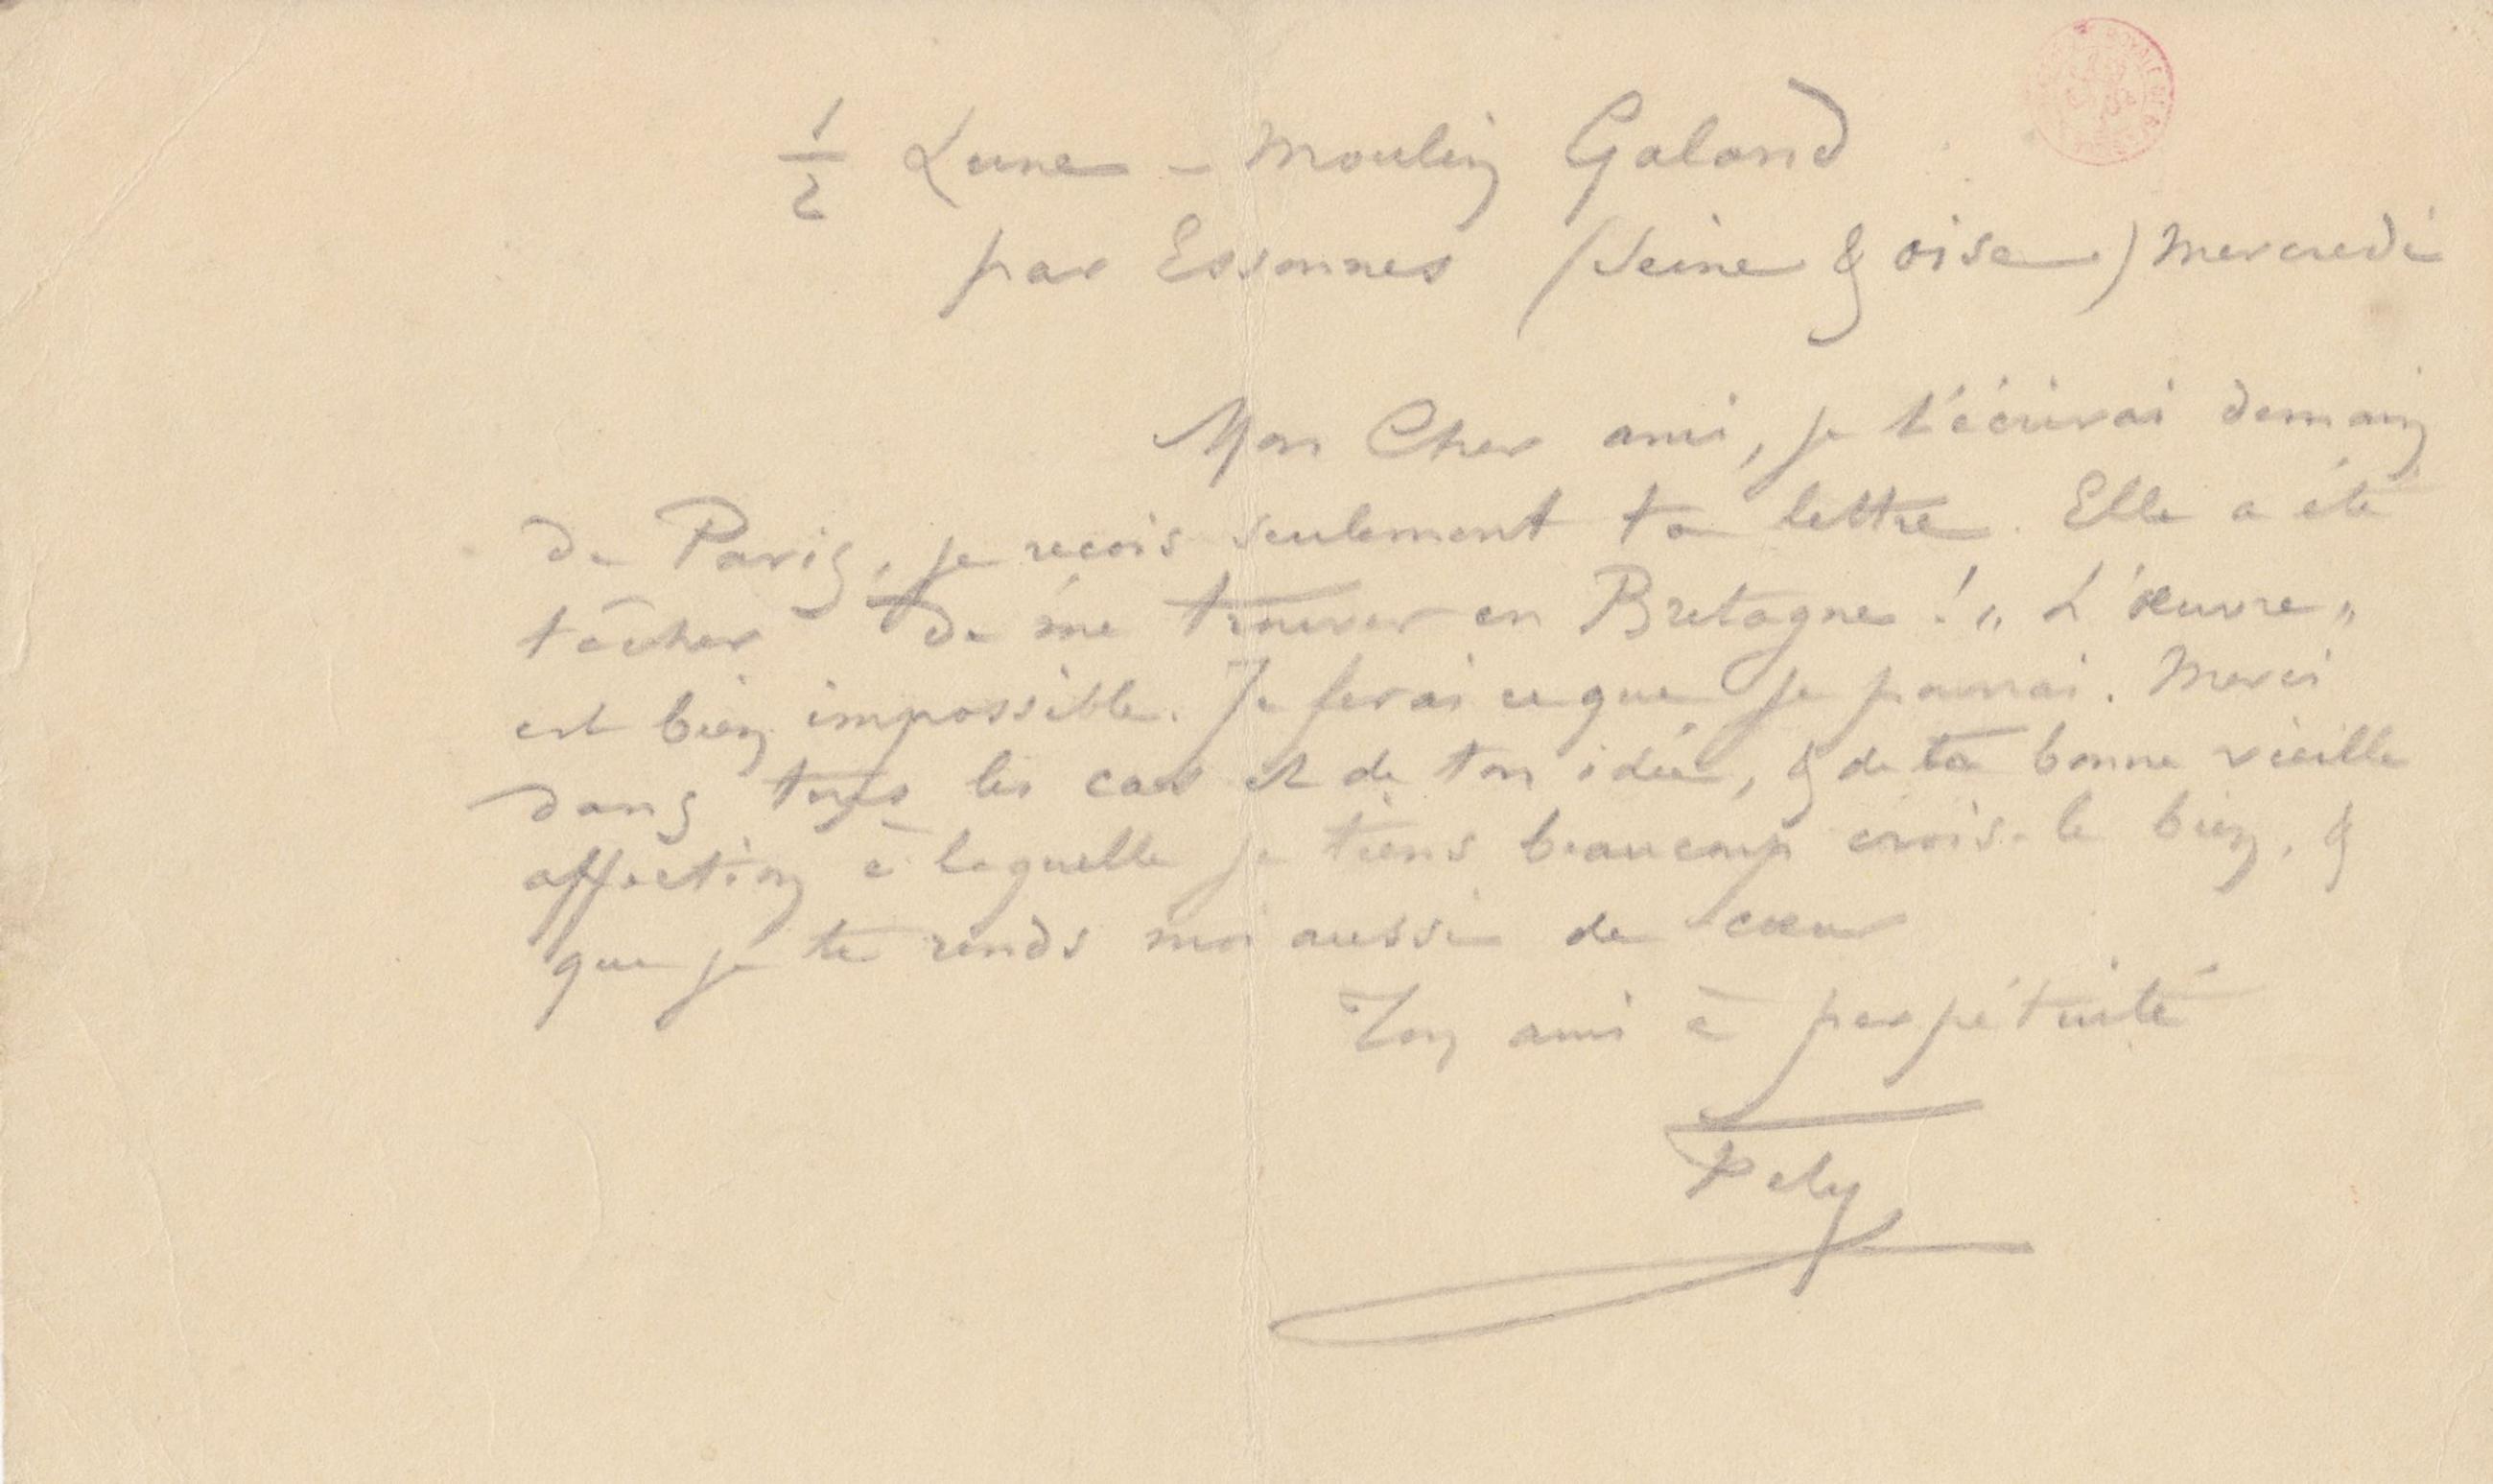 1/2 Lune – Moulin Galand
par Essonnes (Seine & oise) Mercredi
Mon Cher ami, je t'écrirai demain
de Paris, je recois seulement ta lettre. Elle a été
tâcher de me trouver en Bretagne ! „ L'œuvre „
est bien impossible. Je ferai ce que je pourrai. Merci
dans tous les cas et de ton idée, & de ta bonne vieille
affection à laquelle je tiens beaucoup crois-le bien, &
que je te rends moi aussi de cœur
Ton ami à perpétuité
Fély